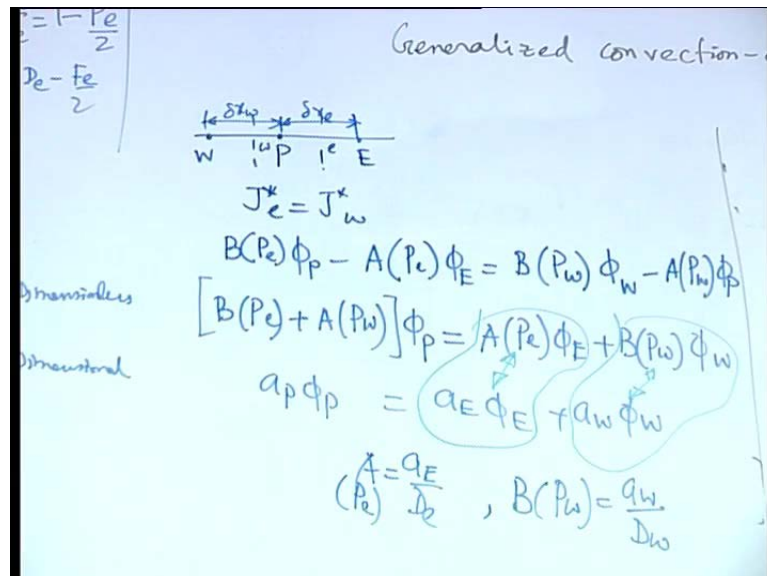 = 1 - Pe/2
Generalized convection-
De - Fe/2
δxw δxe
W w P e E
J*e = J*w
B(Pe)ϕP - A(Pe)ϕE = B(Pw)ϕW - A(Pw)ϕP
Dimensionless
[B(Pe) + A(Pw)]ϕP = A(Pe)ϕE + B(Pw)ϕW
Dimensional
aPϕP = aEϕE + aWϕW
A(Pe) = aE/De , B(Pw) = aW/Dw